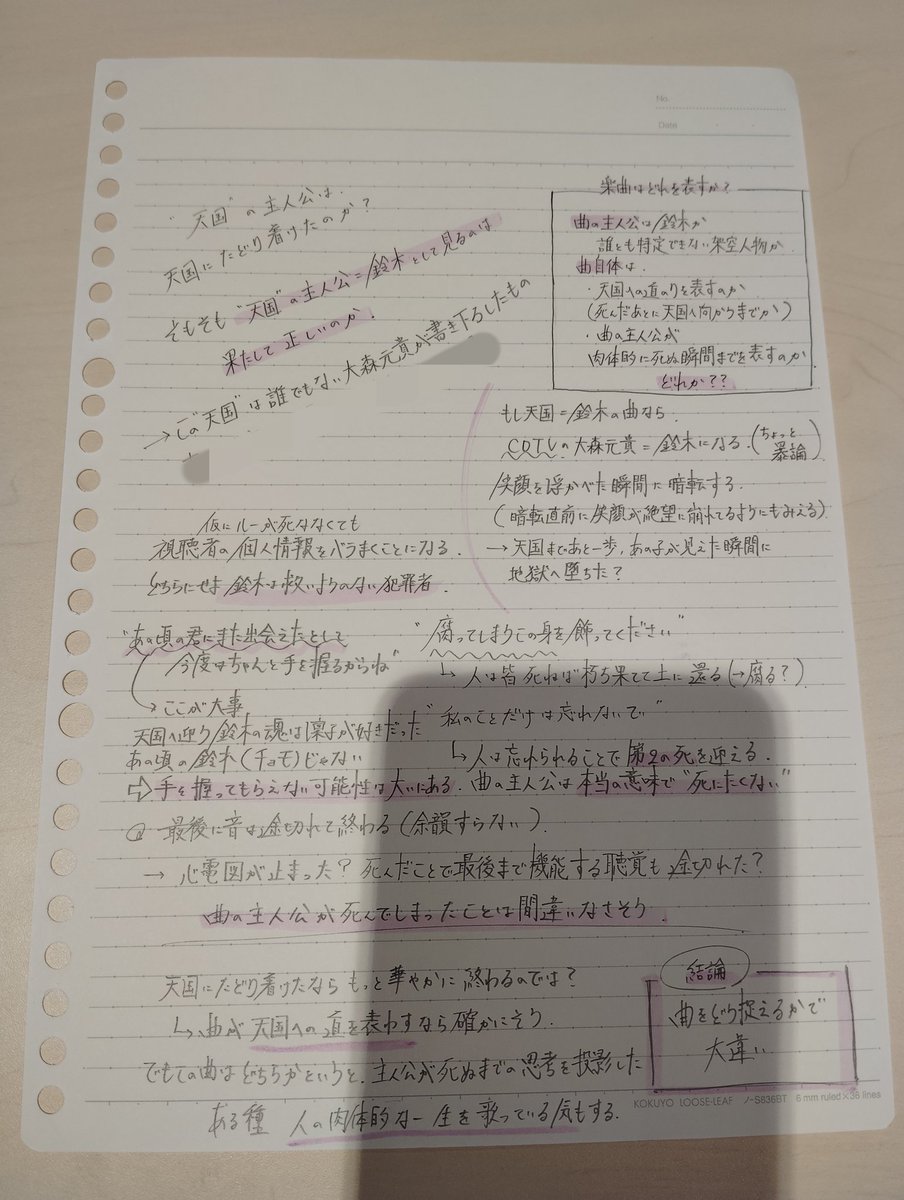 No.
Date
"天国"の主人公は、
天国にたどり着けたのか？
そもそも"天国"の主人公=鈴木として見るのは
果たして正しいのか！
→この"天国"は誰でもない大森元貴が書き下ろしたもの
楽曲はどれを表すか？
曲の主人公は鈴木か
誰とも特定できない架空人物か
曲自体は、
・天国への道のりを表すのか
(死んだあとに天国へ向かうまでか)
・曲の主人公が
肉体的に死ぬ瞬間までを表すのか
どれか？？
もし天国=鈴木の曲なら、
CDTVの大森元貴=鈴木になる。(ちょっと暴論)
笑顔を浮かべた瞬間に暗転する。
(暗転直前に笑顔が絶望に崩れてるようにもみえる)
→天国まであと一歩、あの子が見えた瞬間に
地獄へ堕ちた？
仮にルーが死ななくても
視聴者の個人情報をバラまくことになる。
どちらにせよ鈴木は救いようのない犯罪者。
"あの頃の君にまた出会えたとして
今度はちゃんと手を握るからね"
→ここが大事
天国へ逝く鈴木の魂は凜子が好きだった
あの頃の鈴木(チョモ)じゃない
⇨手を握ってもらえない可能性は大いにある。
"腐ってしまうこの身を飾ってください"
↳人は皆死ねば朽ち果てて土に還る(→腐る？)
"私のことだけは忘れないで"
↳人は忘れられることで第2の死を迎える。
曲の主人公は本当の意味で"死にたくない"
◎最後に音は途切れて終わる(余韻すらない)
→心電図が止まった？死んだことで最後まで機能する聴覚も途切れた？
曲の主人公が死んでしまったことは間違いなさそう。
天国にたどり着けたならもっと華やかに終わるのでは？
↳曲が天国への道を表わすなら確かにそう。
でもこの曲はどちらかというと、主人公が死ぬまでの思考を投影した
ある種 人の肉体的な一生を歌っている気もする。
結論
曲をどう捉えるかで
大違い
KOKUYO LOOSE-LEAF ノ-S836BT 6 mm ruled×36 lines